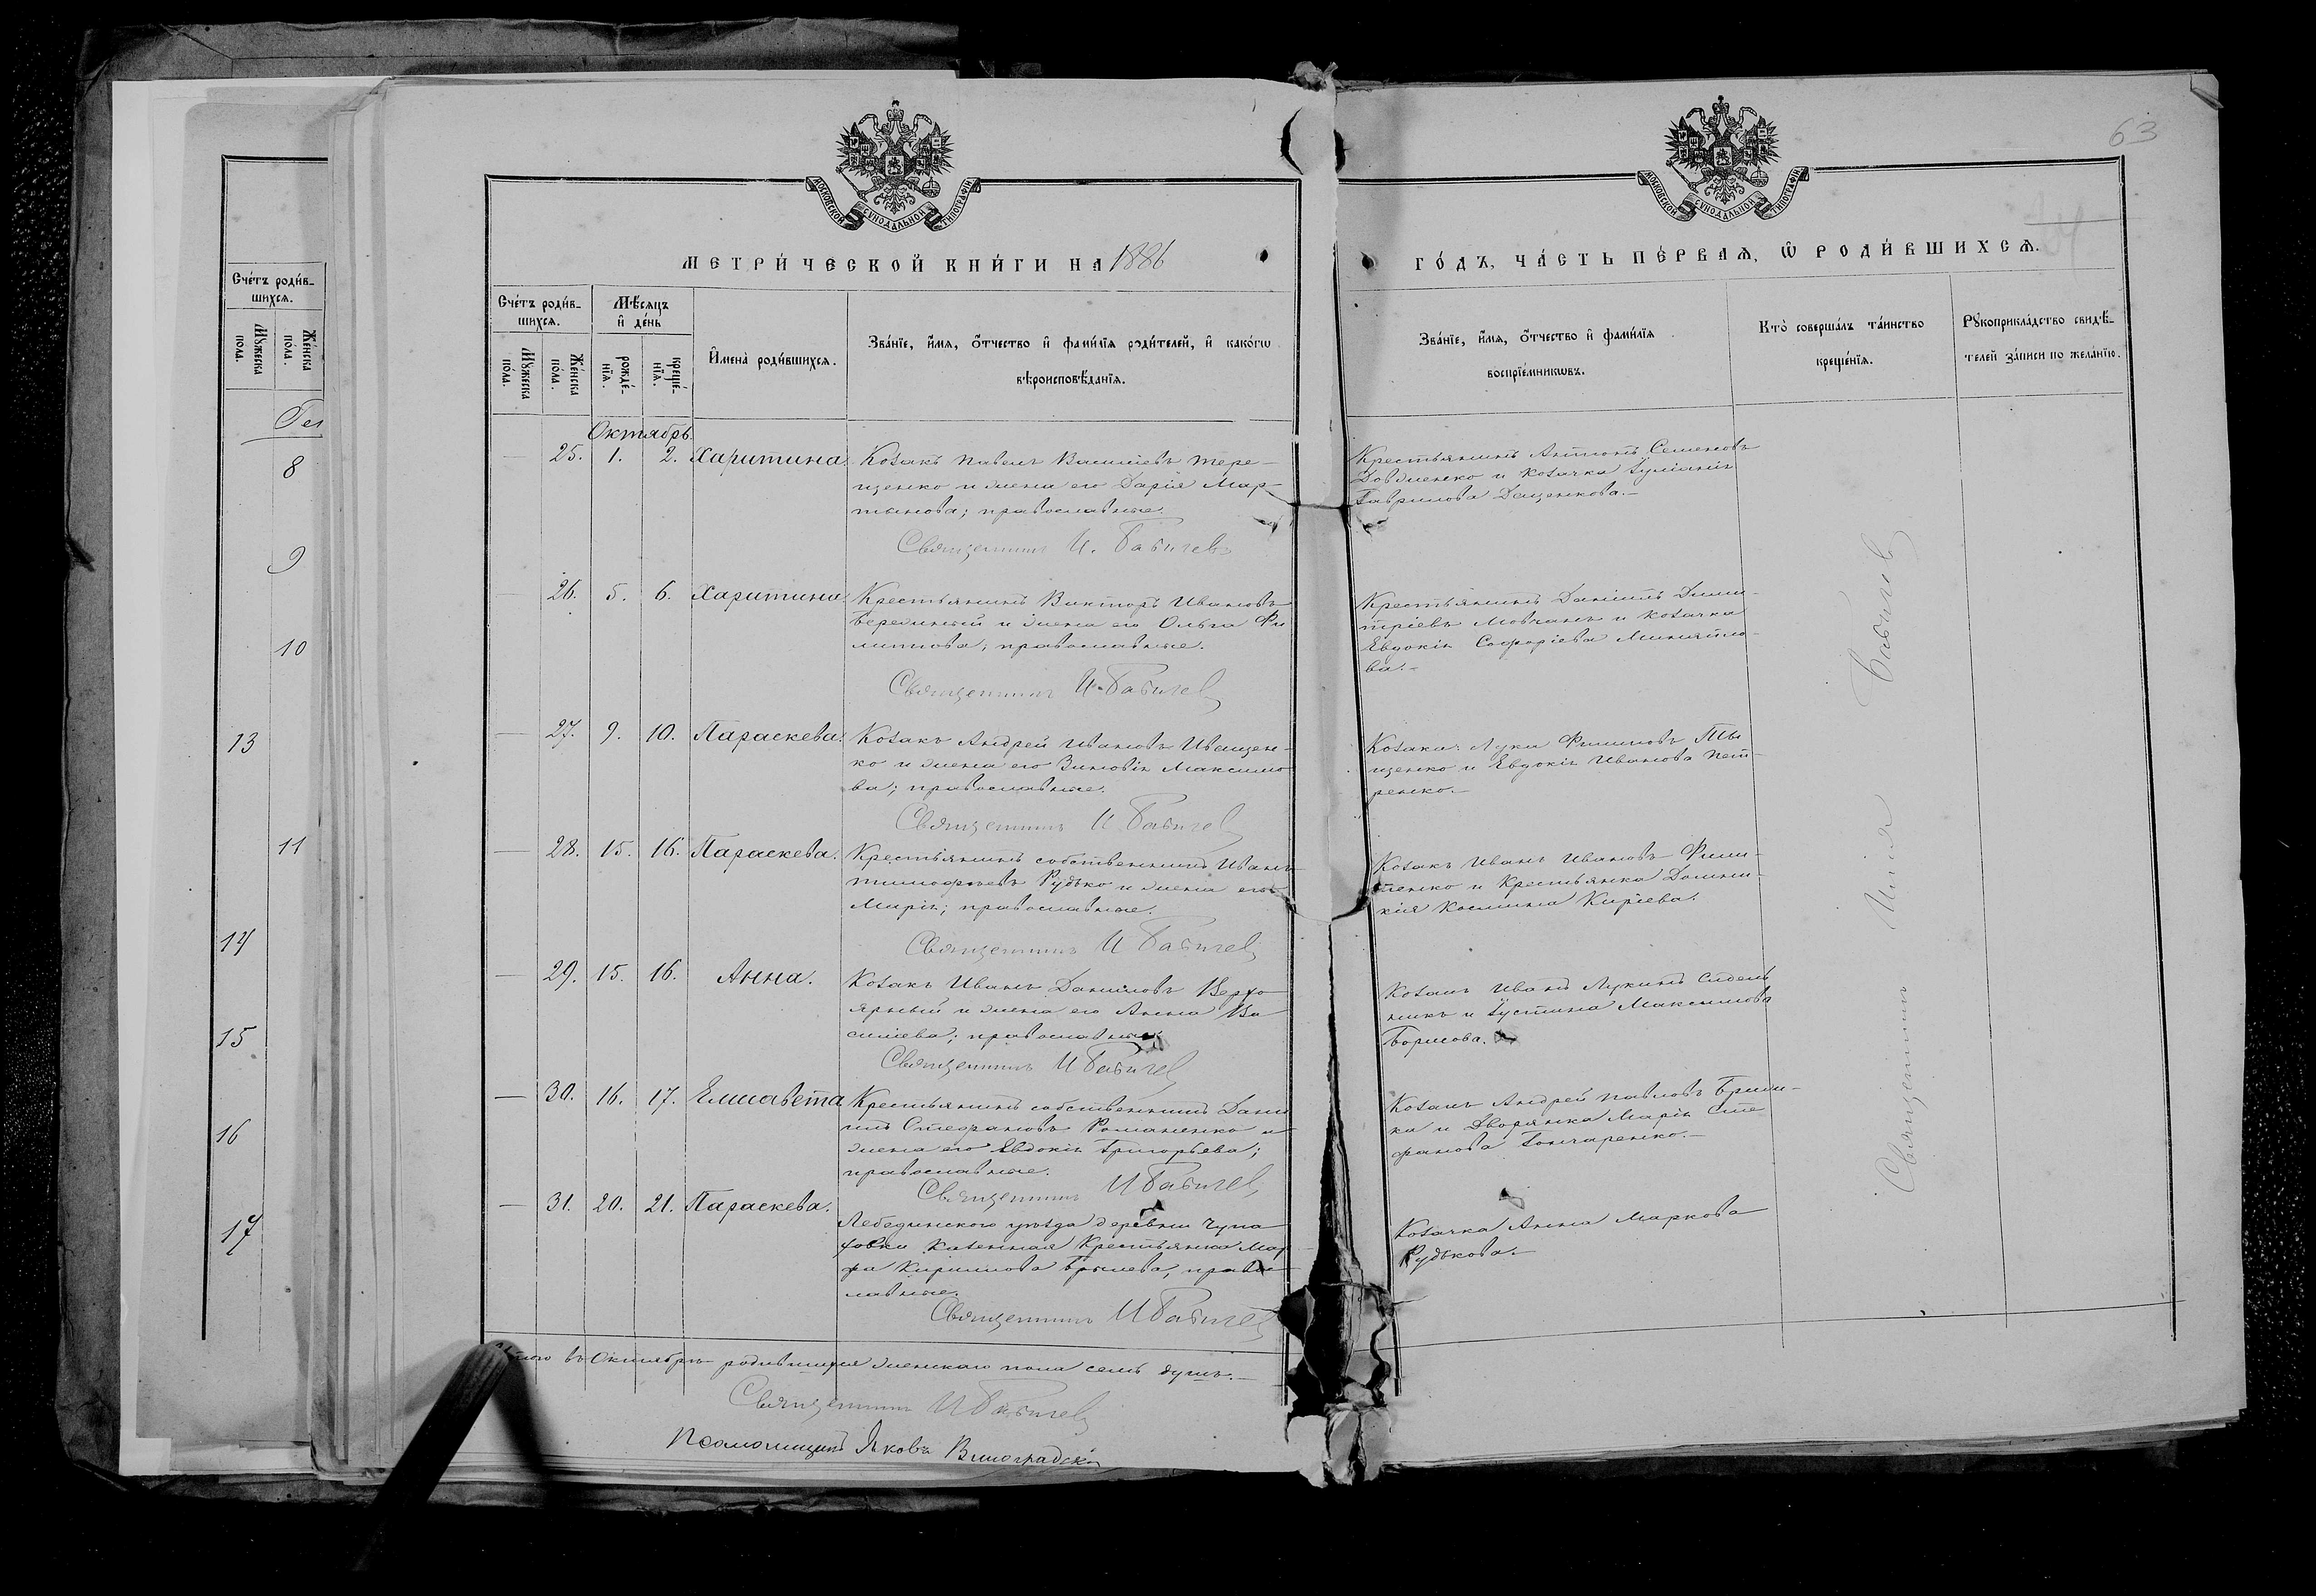 63
МОСКОВСКОЙ СУНОДАЛЬНОЙ ТИПОГРАФІИ
МОСКОВСКОЙ СУНОДАЛЬНОЙ ТИПОГРАФІИ
МЕТРИ́ЧЕСКОЙ КНИ́ГИ НА 1886
ГО́ДЪ, ЧА́СТЬ ПЕ́РВАѦ, Ѡ РОДИ́ВШИХСѦ.
Сче́тъ роди́в-
шихсѧ.
Мꙋжеска по́ла.
Же́нска по́ла.
8
9
10
13
11
14
15
16
17
Сче́тъ роди́в-
шихсѧ.
Мꙋжеска по́ла.
Же́нска по́ла.
Мѣ́сяцъ
и҆ де́нь
рожде́-
нїѧ.
креще́-
нїѧ.
И҆мена̀ роди́вшихсѧ.
Зва́нїе, и҆́мѧ, ѻ҆́тчество и҆ фами́лїѧ роди́телей, и҆ како́гѡ
вѣроисповѣ́данїѧ.
Зва́нїе, и҆́мѧ, ѻ҆́тчество и҆ фами́лїѧ
воспрїе́мникѡвъ.
Кто̀ соверша́лъ та́инство
креще́нїѧ.
Рꙋкоприкла́дство свидѣ́-
телей за́писи по жела́нїю.
Октябрь
25. 1. 2. Харитина.
Козакъ Павелъ Василіевъ Тере-
щенко и жена его Дарія Мар-
тынова; православные.
Священникъ И. Бабичевъ
Крестьянинъ Антонъ Семеновъ
Довженко и козачка Іуліанія
Гаврилова Деценкова.—
26. 5. 6. Харитина.
Крестьянинъ Викторъ Ивановъ
Бережный и жена его Ольга Фи
липпова; православные.
Священникъ И. Бабичев
Крестьянинъ Даніилъ Дими-
тріевъ Мовчанъ и козачка
Евдокія Софоріева Миняйло-
ва.—
27. 9. 10. Параскева.
Козакъ Андрей Ивановъ Иващен-
ко и жена его Зиновія Максимо
ва; православные.
Священникъ И Бабичев
Козаки: Лука Филиповъ Ты
щенко и Евдокія Иванова Пет-
ренко.—
28. 15. 16. Параскева.
Крестьянинъ собственникъ Иванъ
Тимофѣевъ Рудько и жена его
Марія; православные.
Священникъ И Бабичев
Козакъ Иванъ Ивановъ Фили-
пенко и Крестьянка Домни-
кія Космина Киріева.
29. 15. 16. Анна.
Козакъ Иванъ Даниловъ Верхо
ярный и жена его Анна Ва
силіева; православные
Священникъ И Бабичев
Козакъ Иванъ Лукинъ Сидель
никъ и Іустина Максимова
Борисова.
30. 16. 17. Елисавета
Крестьянинъ собственникъ Дани
илъ Стефановъ Романенко и
жена его Евдокія Григорьева;
православные.
Священникъ И Бабичев
Козакъ Андрей Павловъ Брита-
ка и Дворянка Марія Сте
фанова Гончаренко.—
31. 20. 21. Параскева.
Лебединского уѣзда деревни Чупа
ховки казенная Крестьянка Мар
фа Кирилова Брылева, правос
лавные.
Священникъ И Бабичев
Козачка Анна Маркова
Рудькова.—
Священникъ Илія Бабичев
Итого въ Октябрѣ родившихся женскаго пола семь душъ.—
Священникъ И Бабичев
Псаломщикъ Яковъ Виноградскій